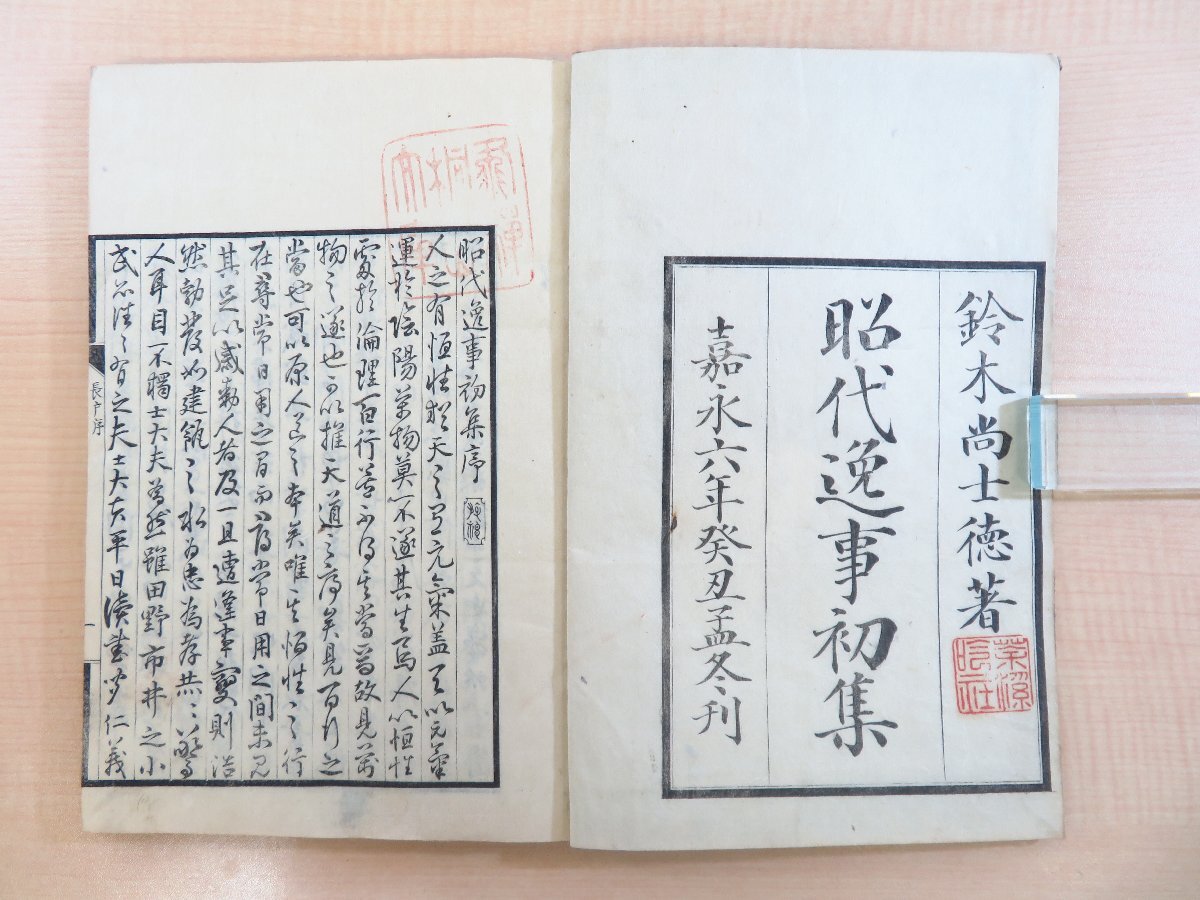 鈴木尚士徳著
昭代逸事初集
嘉永六年癸丑孟冬刊
昭代逸事初集序
人之有恒性猶天之有元氣蓋天以元氣
運於陰陽萬物莫不遂其生焉人以恒性
處於倫理百行
物之遂也可以推天道之
當也可以原人之本矣唯恒性之行
在尋常日用之間而尋常日用之間未見
其足以感動人者及一旦遭逢事變則治
然勃發如建瓴之水為忠為孝
人耳目不獨士大夫為然雖田野市井之小
民亦往々有之夫士大夫平日讀書 仁義
長戸序
一